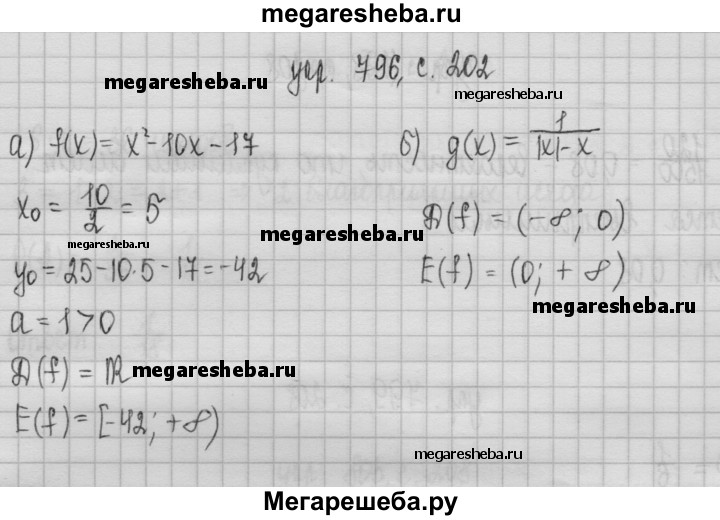 megaresheba.ru
упр. 796, с. 202
megaresheba.ru
megaresheba.ru
а) f(x) = x² - 10x - 17
x₀ = 10/2 = 5
megaresheba.ru
y₀ = 25 - 10·5 - 17 = -42
a = 1 > 0
D(f) = ℝ
megaresheba.ru
E(f) = [-42; +∞)
б) g(x) = 1/(|x| - x)
D(f) = (-∞; 0)
megaresheba.ru
E(f) = (0; +∞)
megaresheba.ru
megaresheba.ru
Мегарешеба.ру